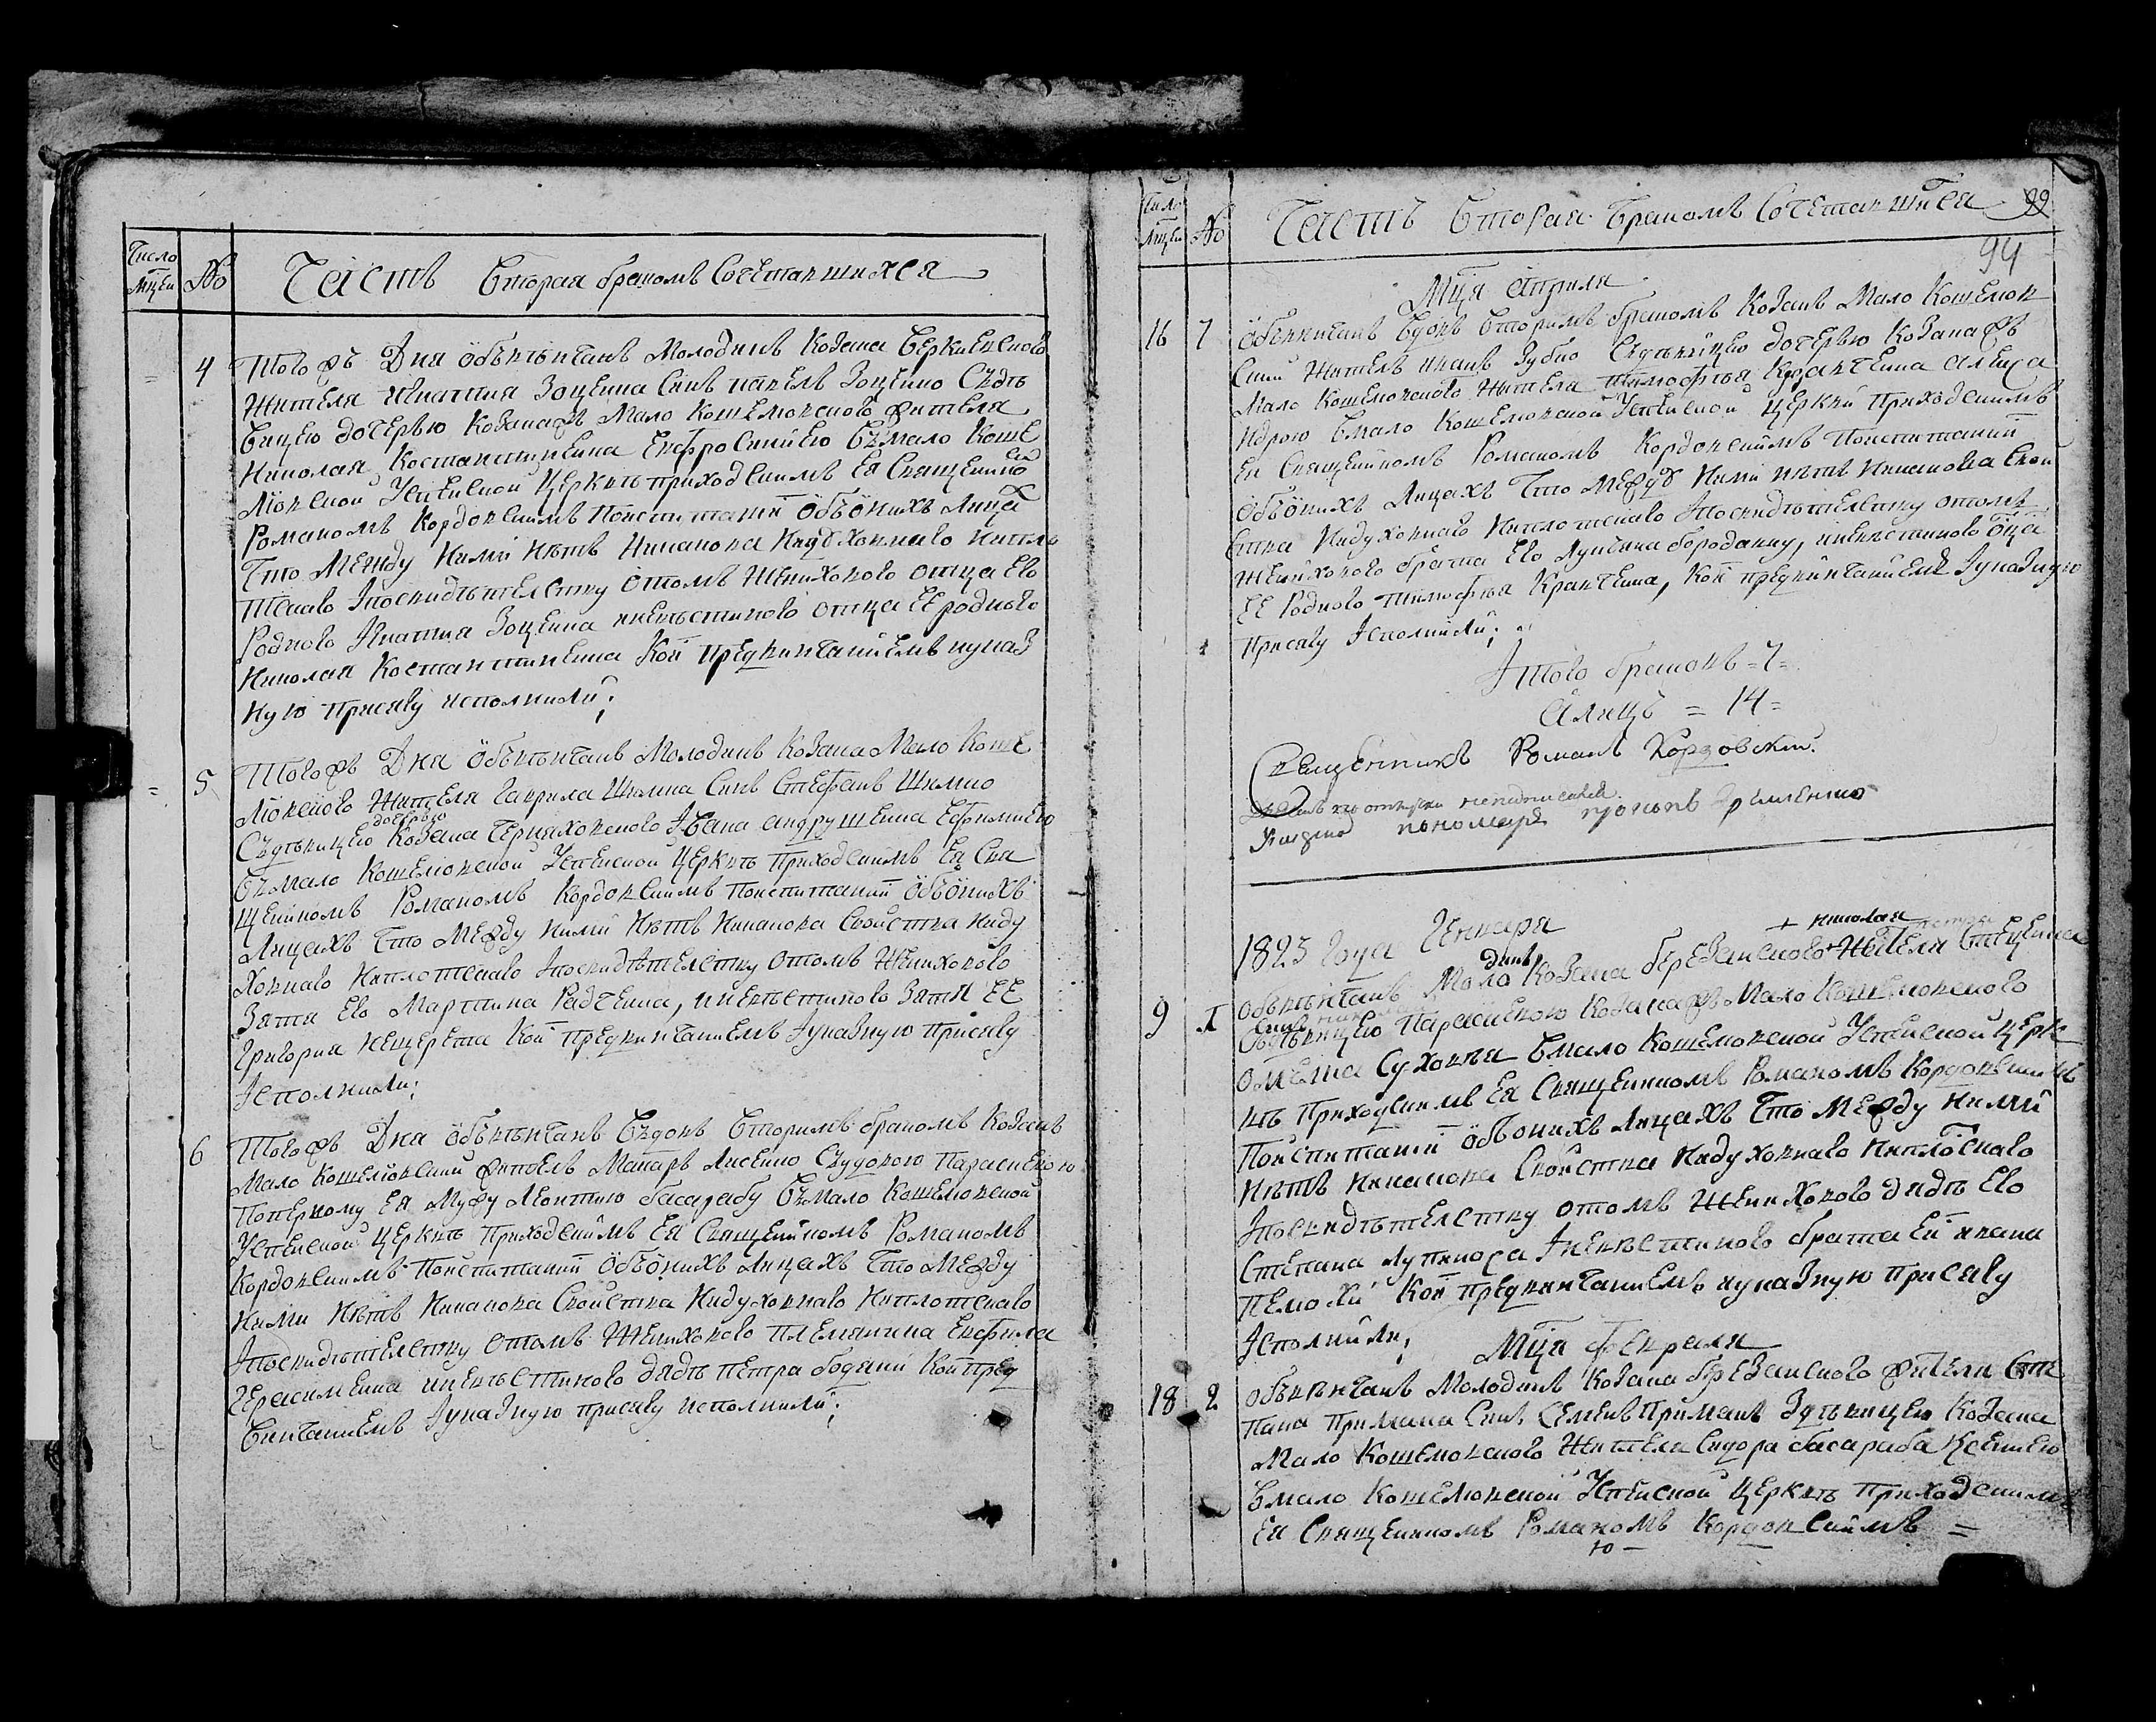 Число
Мцей
№
Часть Вторая бракомъ Сочетавшихся
4
Тогожъ Дня Обвѣнчанъ Молодикъ Козака Беркиевского
Жителя Игнатия Зоценка Синъ Павелъ Зоценко Сдѣ
вицею дочерью Козакажъ Мало Кошелювского Жителя
Николая Костантиненка Евфросиниею Въмало Коше
лювской Успенской Церквѣ приходскимъ Ея Священно
Романомъ Кордовскимъ Повспитании Объоныхъ Лица
Что Между Ними Нѣтъ Никакова Нидуховнаго нипло
тскаго Iпосвидѣтелству Отомъ Женихового отца Его
Родного Игнатия Зоценка иневѣстиного отца ЕЕ родного
Николая Костантиненка Кои предвинчаниемъ иуказ
ную Присягу исполнили;
5
Тогожъ Дня Обвѣнчанъ Молодикъ Козака Мало Коше
лювского Жителя Гаврила Шкляа Синъ Стефанъ Шкляо
Сдѣвицею дочерью Козака Черняховского Iвана андрушенка Ефимиею
Въмало Кошелювской Успенской Церквѣ Приходскимъ Ея Свя
щенникомъ Романомъ Кордовскимъ Повспитании Объоныхъ
Лицахъ Что Между Ними Нѣтъ Никакова Свойства Ниду
Ховнаго Ниплотскаго Iпосвидѣтелству Отомъ Женихового
Зятя Его Мартина Радченка, иневѣстиного Зятя ЕЕ
Григория Нещерета Кои Предвинчаниемъ Iуказную Присягу
Iсполнили;
6
Тогожъ Дня Обвѣнчанъ Вдовъ Вторимъ бракомъ Козакъ
Мало Кошелювский Житель Макаръ Лисенко Свдовою Параскевою
Поперкому Ея Мужу Леонтию басарабу Въмало Кошелювской
Успенской Церквѣ Приходскимъ Ея Священникомъ Романомъ
Кордовскимъ Повспитании Объоныхъ Лицахъ Что Между
Ними Нѣтъ Никакова Свойства Нидуховнаго Ниплотскаго
Iпосвидѣтелству Отомъ Женихового племянника Евфима
Герасименка иневѣстиного дядѣ петра бодяни Кои пред
Винчаниемъ Iуказную присягу исполнили;
Число
Мцей
№
Часть Вторая Бракомъ Сочетавшихся
99
94
Мця Априля
16 7
Обвинчанъ Вдовъ Вторимъ бракомъ Козакъ Мало Кошелюв
ский Житель иванъ Зубко Сдѣвицею дочерью Козакажъ
Мало Кошелювского Жителя тимофѣя Кравченка Алекса
ндрою Вмало Кошелювской Успенской Церкви Приходскимъ
Ея Священникомъ Романомъ Кордовскимъ Повспитании
Объоныхъ Лицахъ Что Между Ними нѣтъ Никакова Свой
ства Нидуховнаго Ниплотскаго Iпосвидѣтелству отомъ
Женихового брата Его Лукяна бороданку, иневѣстиного оца
ЕЕ Родного тимофѣя Кравченка, Кои предвинчаниемъ Iуказную
Присягу Iсполнили;
Iтого браковъ = 7 =
Алицъ = 14 =
Священникъ Романъ Кордовский
пономаръ
1823 Года Генваря
+ николая
9 1
Обвѣнчанъ Молодикъ Козака березанского + Жителя
Сдѣвицею Параскевою Козакажъ Мало Кошелювского
Омелка Суховия Вмало Кошелювской Успенской Церк
вѣ Приходскимъ Ея Священникомъ Романомъ Кордовскимъ
Повспитании Объоныхъ Лицахъ Что Между Ними
Нѣтъ Никакова Свойства Нидуховнаго Ниплотскаго
Iпосвидѣтелству отомъ Женихового дядѣ Его
Степана Лупикоса Iневѣстиного брата Ей ивана
Кои Предвинчаниемъ иуказную присягу
Iсполнили;
Мця Февраля
18 2
Обвѣнчанъ Молодикъ Козака березанского Жителя Сте
пана Примака Синъ Семенъ Примакъ Здѣвицею Козака
Мало Кошелювского Жителя Сидора басараба Ксениею
Вмало Кошелювской Успенской Церквѣ Приходскимъ
Ея Священникомъ Романомъ Кордовскимъ =